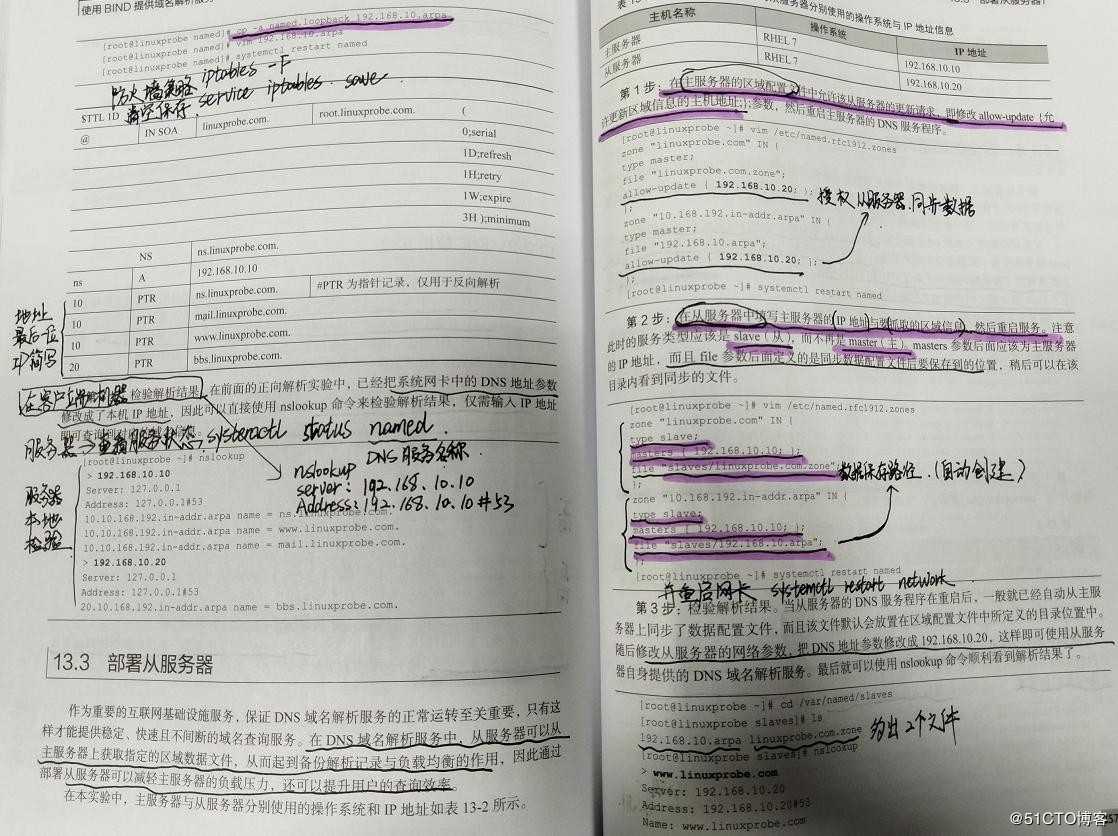 使用 BIND 提供域名解析服务
[root@linuxprobe named]# cp -a named.loopback 192.168.10.arpa
[root@linuxprobe named]# vim 192.168.10.arpa
[root@linuxprobe named]# systemctl restart named
防火墙策略 iptables -F
清空保存, service iptables save
$TTL 1D
@ IN SOA linuxprobe.com. root.linuxprobe.com. (
0;serial
1D;refresh
1H;retry
1W;expire
3H );minimum
NS ns.linuxprobe.com.
ns A 192.168.10.10
10 PTR ns.linuxprobe.com. #PTR 为指针记录，仅用于反向解析
10 PTR mail.linuxprobe.com.
10 PTR www.linuxprobe.com.
20 PTR bbs.linuxprobe.com.
地址
最后一位
IP简写
在客户端机器
检验解析结果。在前面的正向解析实验中，已经把系统网卡中的 DNS 地址参数
修改成了本机 IP 地址，因此可以直接使用 nslookup 命令来检验解析结果，仅需输入 IP 地址
服务器→查看服务状态, systemctl status named
DNS 服务名称
[root@linuxprobe ~]# nslookup
> 192.168.10.10
Server: 127.0.0.1
Address: 127.0.0.1#53
10.10.168.192.in-addr.arpa name = ns.linuxprobe.com.
10.10.168.192.in-addr.arpa name = www.linuxprobe.com.
10.10.168.192.in-addr.arpa name = mail.linuxprobe.com.
> 192.168.10.20
Server: 127.0.0.1
Address: 127.0.0.1#53
20.10.168.192.in-addr.arpa name = bbs.linuxprobe.com.
nslookup
server: 192.168.10.10
Address: 192.168.10.10#53
服务器
本地
检验
13.3 部署从服务器
作为重要的互联网基础设施服务，保证 DNS 域名解析服务的正常运转至关重要，只有这
样才能提供稳定、快速且不间断的域名查询服务。在 DNS 域名解析服务中，从服务器可以从
主服务器上获取指定的区域数据文件，从而起到备份解析记录与负载均衡的作用，因此通过
部署从服务器可以减轻主服务器的负载压力，还可以提升用户的查询效率。
在本实验中，主服务器与从服务器分别使用的操作系统和 IP 地址如表 13-2 所示。
13.3 部署从服务器
从服务器分别使用的操作系统与 IP 地址信息
主机名称 操作系统 IP 地址
主服务器 RHEL 7 192.168.10.10
从服务器 RHEL 7 192.168.10.20
第 1 步：在主服务器的区域配置文件中允许该从服务器的更新请求，即修改 allow-update {允
许更新区域信息的主机地址;};参数，然后重启主服务器的 DNS 服务程序。
[root@linuxprobe ~]# vim /etc/named.rfc1912.zones
zone "linuxprobe.com" IN {
type master;
file "linuxprobe.com.zone";
allow-update { 192.168.10.20; };
};
授权从服务器.同步数据
zone "10.168.192.in-addr.arpa" IN {
type master;
file "192.168.10.arpa";
allow-update { 192.168.10.20; };
};
[root@linuxprobe ~]# systemctl restart named
第 2 步：在从服务器中填写主服务器的 IP 地址与要抓取的区域信息，然后重启服务。注意
此时的服务类型应该是 slave（从），而不再是 master（主）。masters 参数后面应该为主服务器
的 IP 地址，而且 file 参数后面定义的是同步数据配置文件后要保存到的位置，稍后可以在该
目录内看到同步的文件。
[root@linuxprobe ~]# vim /etc/named.rfc1912.zones
zone "linuxprobe.com" IN {
type slave;
masters { 192.168.10.10; };
file "slaves/linuxprobe.com.zone";
};
数据保存路径.(自动创建)
zone "10.168.192.in-addr.arpa" IN {
type slave;
masters { 192.168.10.10; };
file "slaves/192.168.10.arpa";
};
[root@linuxprobe ~]# systemctl restart named
并重启网卡 systemctl restart network
第 3 步：检验解析结果。当从服务器的 DNS 服务程序在重启后，一般就已经自动从主服
务器上同步了数据配置文件，而且该文件默认会放置在区域配置文件中所定义的目录位置中。
随后修改从服务器的网络参数，把 DNS 地址参数修改成 192.168.10.20，这样即可使用从服务
器自身提供的 DNS 域名解析服务。最后就可以使用 nslookup 命令顺利看到解析结果了。
[root@linuxprobe ~]# cd /var/named/slaves
[root@linuxprobe slaves]# ls
192.168.10.arpa linuxprobe.com.zone
多出2个文件
[root@linuxprobe slaves]# nslookup
> www.linuxprobe.com
Server: 192.168.10.20
Address: 192.168.10.20#53
Name: www.linuxprobe.com
@51CTO博客